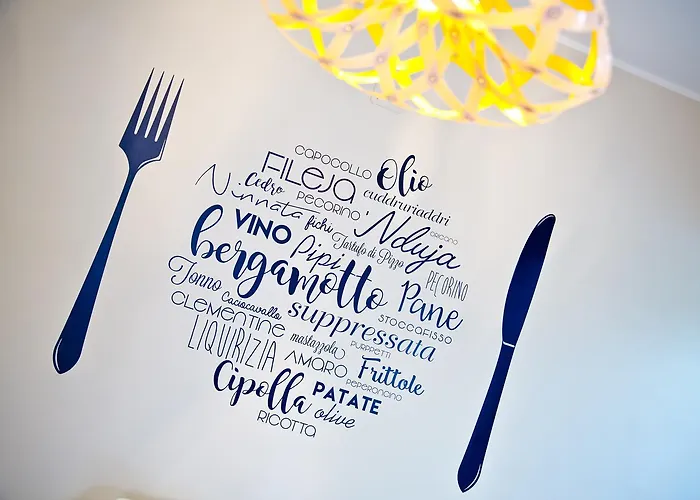 CAPOCOLLO Olio
FiLEJA cuddruriaddri
Cedro PECORINO
Ninnata fichi 'Nduja ORIGANO
VINO Pipi Tartufo di Pizzo
bergamotto Pane PECORINO
Tonno Caciocavallo STOCCAFISSO
CLEMENTINE suppressata
LIQUIRIZIA mastazzola PURPPETTI
AMARO Frittole
Cipolla PATATE PEPERONCINO
RICOTTA olive